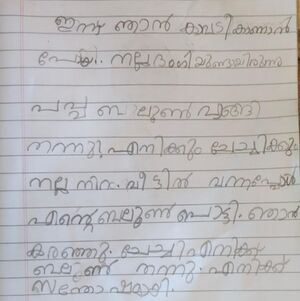 ഇന്ന് ഞാൻ കാവടി കാണാൻ
പോയി. നല്ല ഭംഗിയുണ്ടായിരുന്നു
പപ്പ ബലൂൺ വാങ്ങി
തന്നു. എനിക്കും ചേച്ചിക്കും
നല്ല നിറം. വീട്ടിൽ വന്നപ്പോൾ
എന്റെ ബലൂൺ പൊട്ടി. ഞാൻ
കരഞ്ഞു. ചേച്ചി എനിക്ക്
ബലൂൺ തന്നു. എനിക്ക്
സന്തോഷമായി.